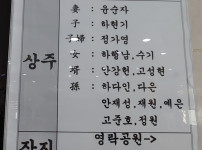 妻 : 윤순자
子 : 하현기
子婦 : 정가영
상주
女 : 하행남, 수기
壻 : 난강현, 고섭현
孫 : 하다인, 다은
안재성, 재원, 예은
고준호, 정원
장지
영락공원->